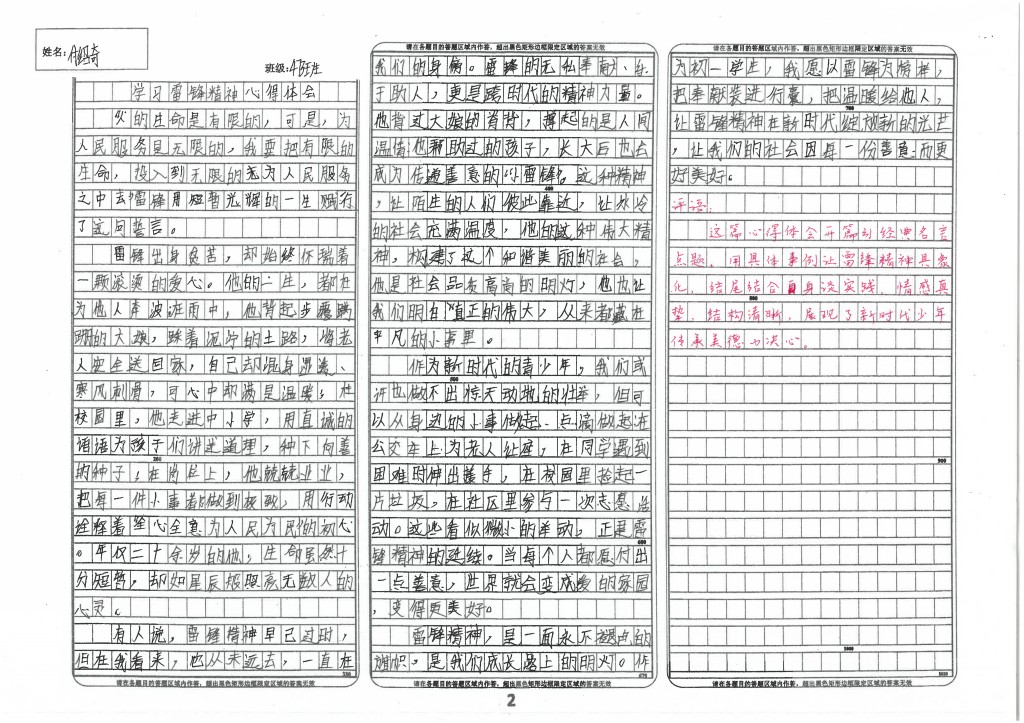 姓名：
班级：
请在各题目的答题区域内作答，超出黑色矩形边框限定区域的答案无效
学习雷锋精神心得体会
的生命是有限的，可是，为
人民服务是无限的，我要把有限的
生命，投入到无限的为人民服务
之中去雷锋用短暂光辉的一生践行
了这句誓言。
雷锋出身贫苦，却始终怀揣着
一颗滚烫的爱心。他的一生，都在
为他人奔波在雨中，他背起步履蹒
跚的大娘，踩着泥泞的土路，将老
人安全送回家，自己却浑身湿透、
寒风刺骨，可心中却满是温暖；在
校园里，他走进中小学，用真诚的
话语为孩子们讲述道理，种下向善
的种子；在岗位上，他兢兢业业，
200
把每一件小事都做到极致，用行动
诠释着全心全意为人民为民的初心
。年仅二十余岁的他，生命虽然十
分短暂，却如星辰般照亮无数人的
心灵。
有人说，雷锋精神早已过时，
但在我看来，他从未远去，一直在
请在各题目的答题区域内作答，超出黑色矩形边框限定区域的答案无效
请在各题目的答题区域内作答，超出黑色矩形边框限定区域的答案无效
我们的身旁。雷锋的无私奉献、乐
于助人，更是跨时代的精神力量。
他背过大娘的脊背，撑起的是人间
温情；他帮助过的孩子，长大后也会
成为传递善意的“小雷锋”。这种精神
400
，让陌生的人们彼此靠近，让冰冷
的社会充满温度，他的这种伟大精
神，构建了这个和谐美丽的社会，
他是社会品质高高的明灯，他也让
我们明白真正的伟大，从来都藏在
平凡的小事里。
作为新时代的青少年，我们或
500
许也做不出惊天动地的壮举，但可
以从身边的小事做起、点滴做起在
公交车上为老人让座，在同学遇到
困难时伸出援手，在校园里捡起一
片垃圾，在社区里参与一次志愿活
动。这些看似微小的举动，正是雷
600
锋精神的延续。当每个人都愿付出
一点善意，世界就会变成爱的家园
，变得更美好。
雷锋精神，是一面永不褪色的
旗帜，是我们成长路上的明灯。作
675
请在各题目的答题区域内作答，超出黑色矩形边框限定区域的答案无效
请在各题目的答题区域内作答，超出黑色矩形边框限定区域的答案无效
为初一学生，我愿以雷锋为榜样，
把奉献装进行囊，把温暖给他人，
700
让雷锋精神在新时代绽放新的光芒
，让我们的社会因每一份善意而更
好美好。
评语：
这篇心得体会开篇引经典名言
点题，用具体事例让雷锋精神具象
化，结尾结合自身谈实践，情感真
800
挚，结构清晰，展现了新时代少年
传承美德的决心。
900
1000
请在各题目的答题区域内作答，超出黑色矩形边框限定区域的答案无效
2